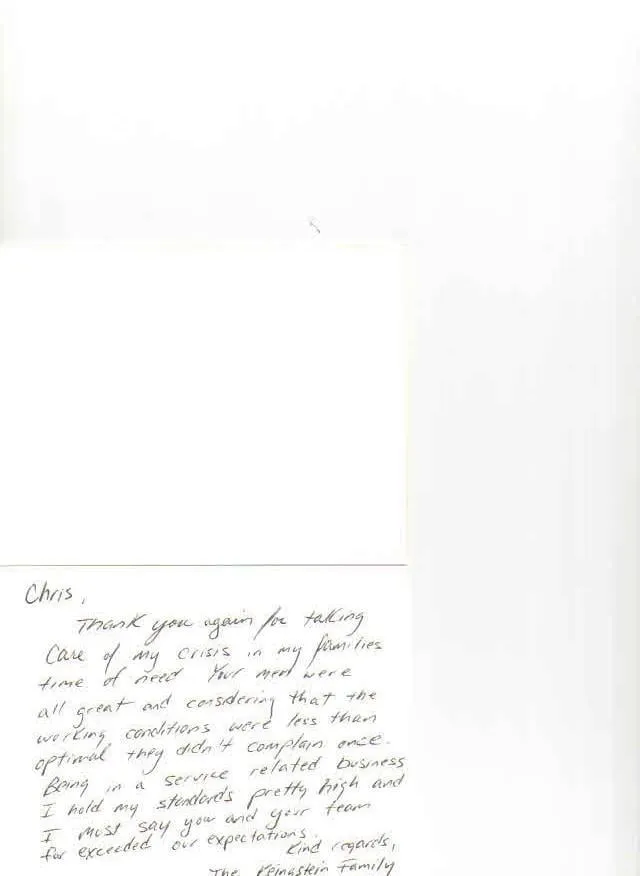 Chris,
Thank you again for talking
care of my crisis in my families
time of need Your men were
all great and considering that the
working conditions were less than
optimal they didn't complain once.
Being in a service related business
I hold my standards pretty high and
I must say you and your team
far exceeded our expectations.
Kind regards,
The Family